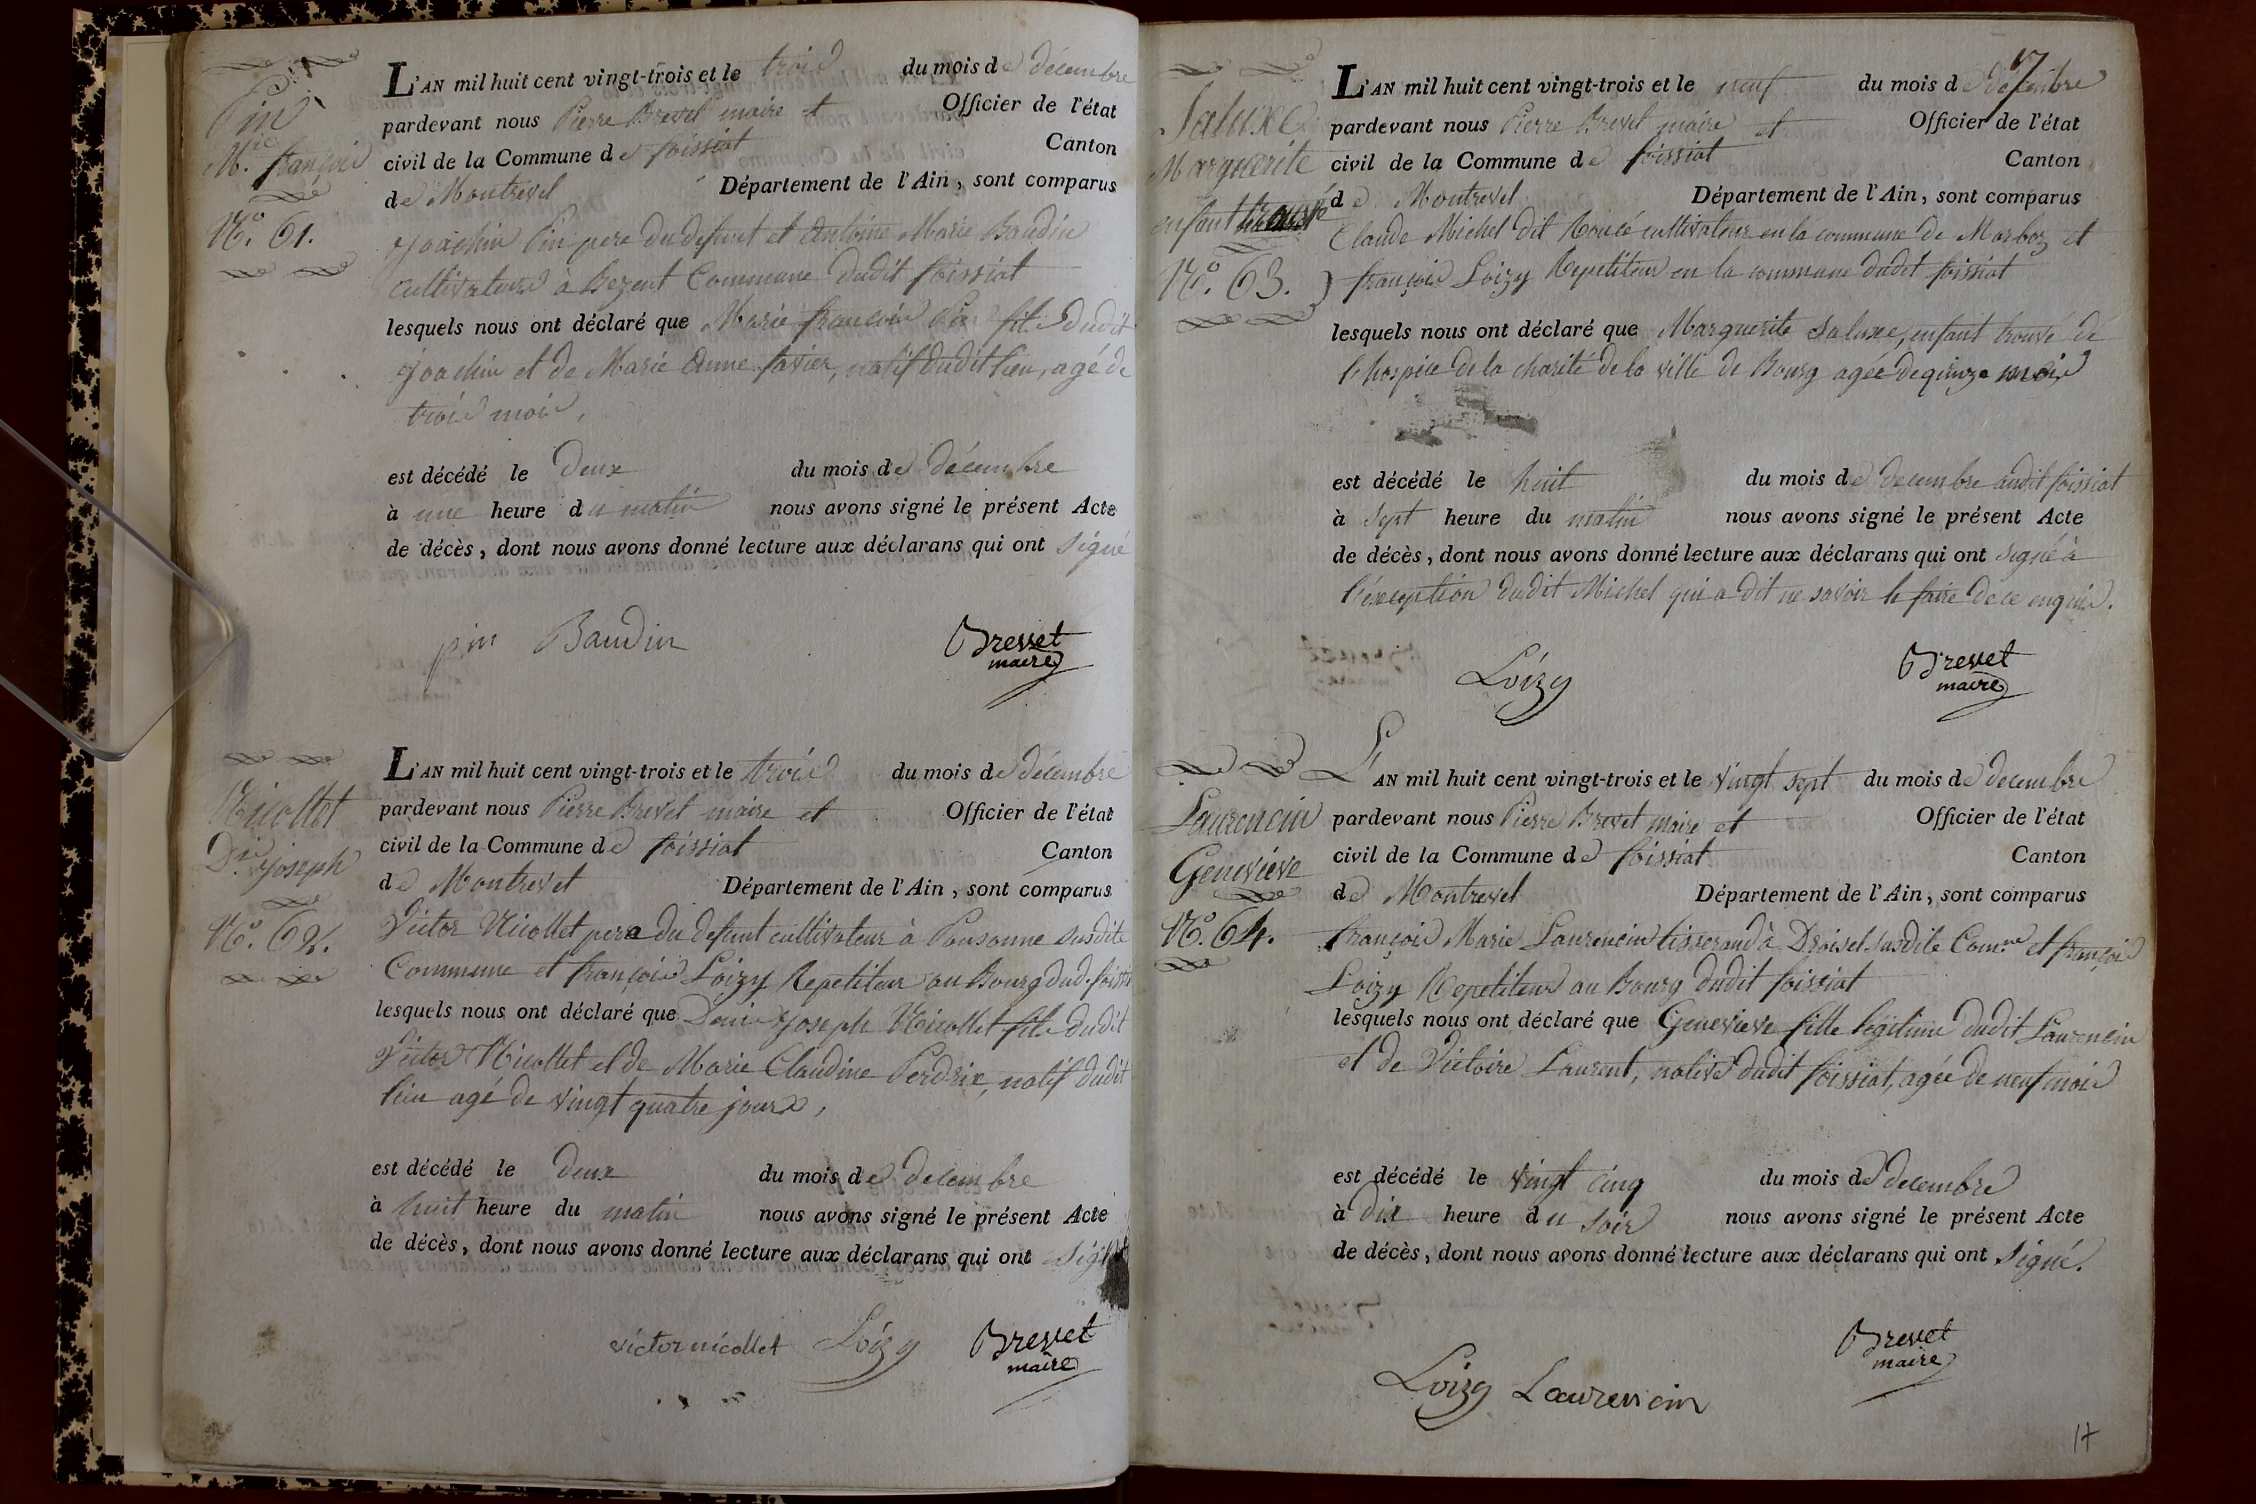 Pin
M.rie françois
N.o 61.
L'AN mil huit cent vingt-trois et le trois du mois de décembre
pardevant nous Pierre Brevet maire et Officier de l'état
civil de la Commune de foissiat Canton
de Montrevel Département de l'Ain, sont comparus
Joachim Pin pere du defunt et Antoine Marie Baudin
cultivateurs à Bezent Commune dudit foissiat
lesquels nous ont déclaré que Marie françois Pin fils dudit
Joachim et de Marie Anne favier, natif dudit lieu, agé de
trois mois,
est décédé le deux du mois de décembre
à une heure du matin nous avons signé le présent Acte
de décès, dont nous avons donné lecture aux déclarans qui ont signé
pin Baudin Brevet
maire
Nicollet
D.is joseph
N.o 62.
L'AN mil huit cent vingt-trois et le trois du mois de décembre
pardevant nous Pierre Brevet maire et Officier de l'état
civil de la Commune de foissiat Canton
de Montrevel Département de l'Ain, sont comparus
Victor Nicollet pere du defunt cultivateur à Pousonne susdite
Commune et françois Loizy Repetiteur au Bourg dud. foissiat
lesquels nous ont déclaré que Denis Joseph Nicollet fils dudit
Victor Nicollet et de Marie Claudine Perdrix, natif dudit
lieu agé de vingt quatre jours,
est décédé le deux du mois de decembre
à huit heure du matin nous avons signé le présent Acte
de décès, dont nous avons donné lecture aux déclarans qui ont signé
victor nicollet Loizy Brevet
maire
17
Saluxe
Marguerite
enfant trouvé
N.o 63.
L'AN mil huit cent vingt-trois et le neuf du mois de décembre
pardevant nous Pierre Brevet maire et Officier de l'état
civil de la Commune de foissiat Canton
de Montrevel Département de l'Ain, sont comparus
Claude Michel dit cultivateur en la commune de Marboz et
françois Loizy Repetiteur en la commune dudit foissiat
lesquels nous ont déclaré que Marguerite Saluxe, enfant trouvé de
l'hospice de la charité de la ville de Bourg agée de quinze mois
est décédé le huit du mois de decembre audit foissiat
à sept heure du matin nous avons signé le présent Acte
de décès, dont nous avons donné lecture aux déclarans qui ont signé à
l'exception dudit Michel qui a dit ne savoir le faire de ce enquis.
Loizy Brevet
maire
Laurencin
Genevieve
N.o 64.
L'AN mil huit cent vingt-trois et le vingt sept du mois de decembre
pardevant nous Pierre Brevet maire et Officier de l'état
civil de la Commune de foissiat Canton
de Montrevel Département de l'Ain, sont comparus
françois Marie Laurencin tisserand à Droiset susdite Com.ne et françois
Loizy Repetiteur au Bourg dudit foissiat
lesquels nous ont déclaré que Genevieve fille légitime dudit Laurencin
et de Victoire Laurent, native dudit foissiat, agée de neuf mois
est décédé le vingt cinq du mois de decembre
à dix heure du soir nous avons signé le présent Acte
de décès, dont nous avons donné lecture aux déclarans qui ont signé.
Loizy Laurencin Brevet
maire
17